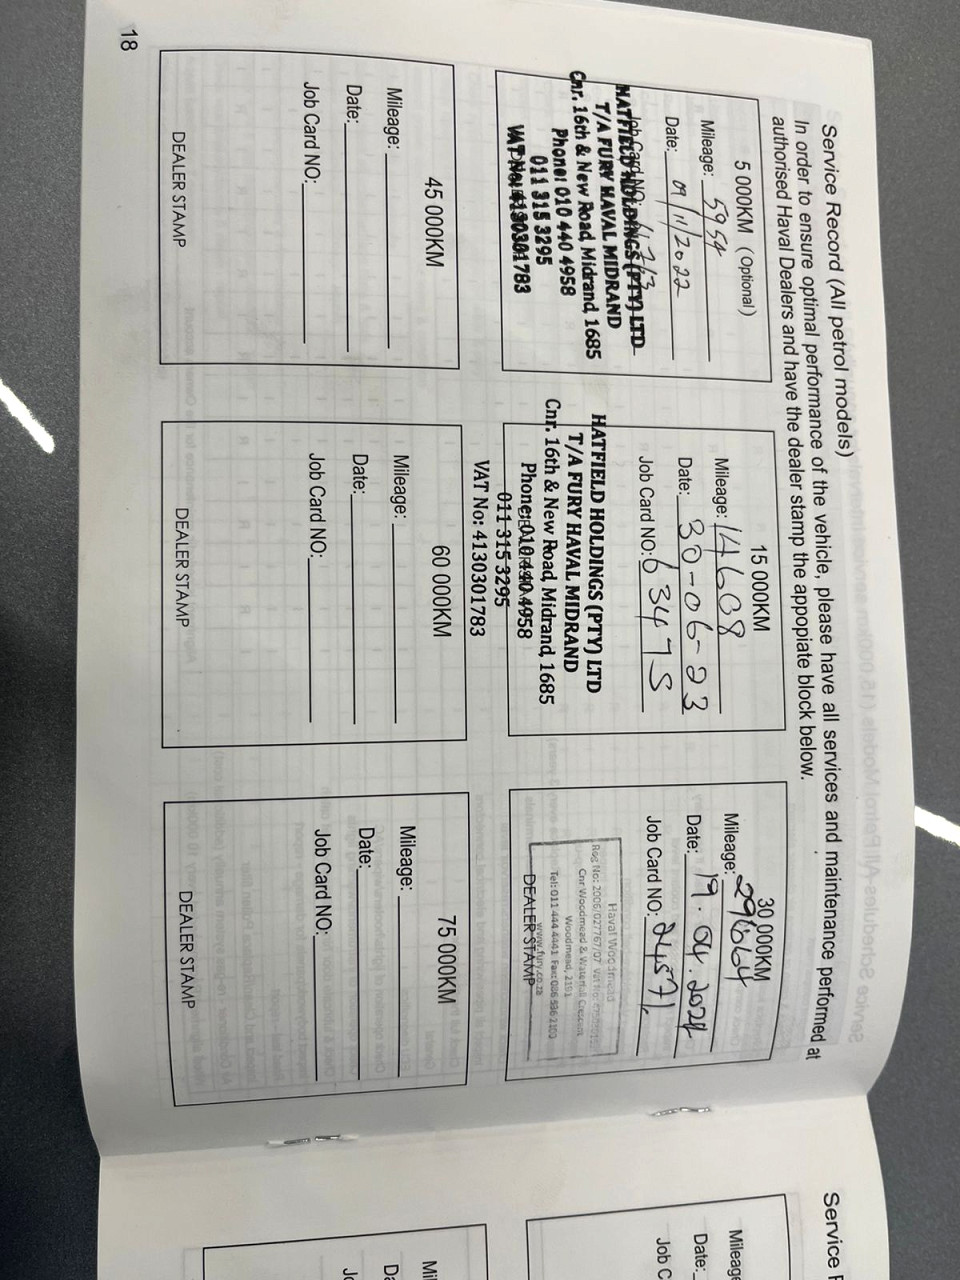 Service Record (All petrol models)
In order to ensure optimal performance of the vehicle, please have all services and maintenance performed at
authorised Haval Dealers and have the dealer stamp the appopiate block below.
5 000KM (Optional)
Mileage: 5954
Date: 09/11/2022
Job Card NO:
HATFIELD HOLDINGS (PTY) LTD
T/A FURY HAVAL MIDRAND
Cnr. 16th & New Road, Midrand, 1685
Phone: 010 440 4958
011 315 3295
VAT No: 4130301783
15 000KM
Mileage: 14608
Date: 30-06-23
Job Card NO: 63475
HATFIELD HOLDINGS (PTY) LTD
T/A FURY HAVAL MIDRAND
Cnr. 16th & New Road, Midrand, 1685
Phone: 010 440 4958
011 315 3295
VAT No: 4130301783
30 000KM
Mileage: 29664
Date: 19.04.2024
Job Card NO: 24571
Haval Woodmead
Reg No: 2006/027767/07
Cnr Woodmead & Waterfall Crescent
Woodmead, 2191
Tel: 011 444 4441
DEALER STAMP
www.fury.co.za
45 000KM
Mileage:
Date:
Job Card NO:
DEALER STAMP
60 000KM
Mileage:
Date:
Job Card NO:
DEALER STAMP
75 000KM
Mileage:
Date:
Job Card NO:
DEALER STAMP
18
Service
Mileage
Date:
Job C
Mil
Da
Jo